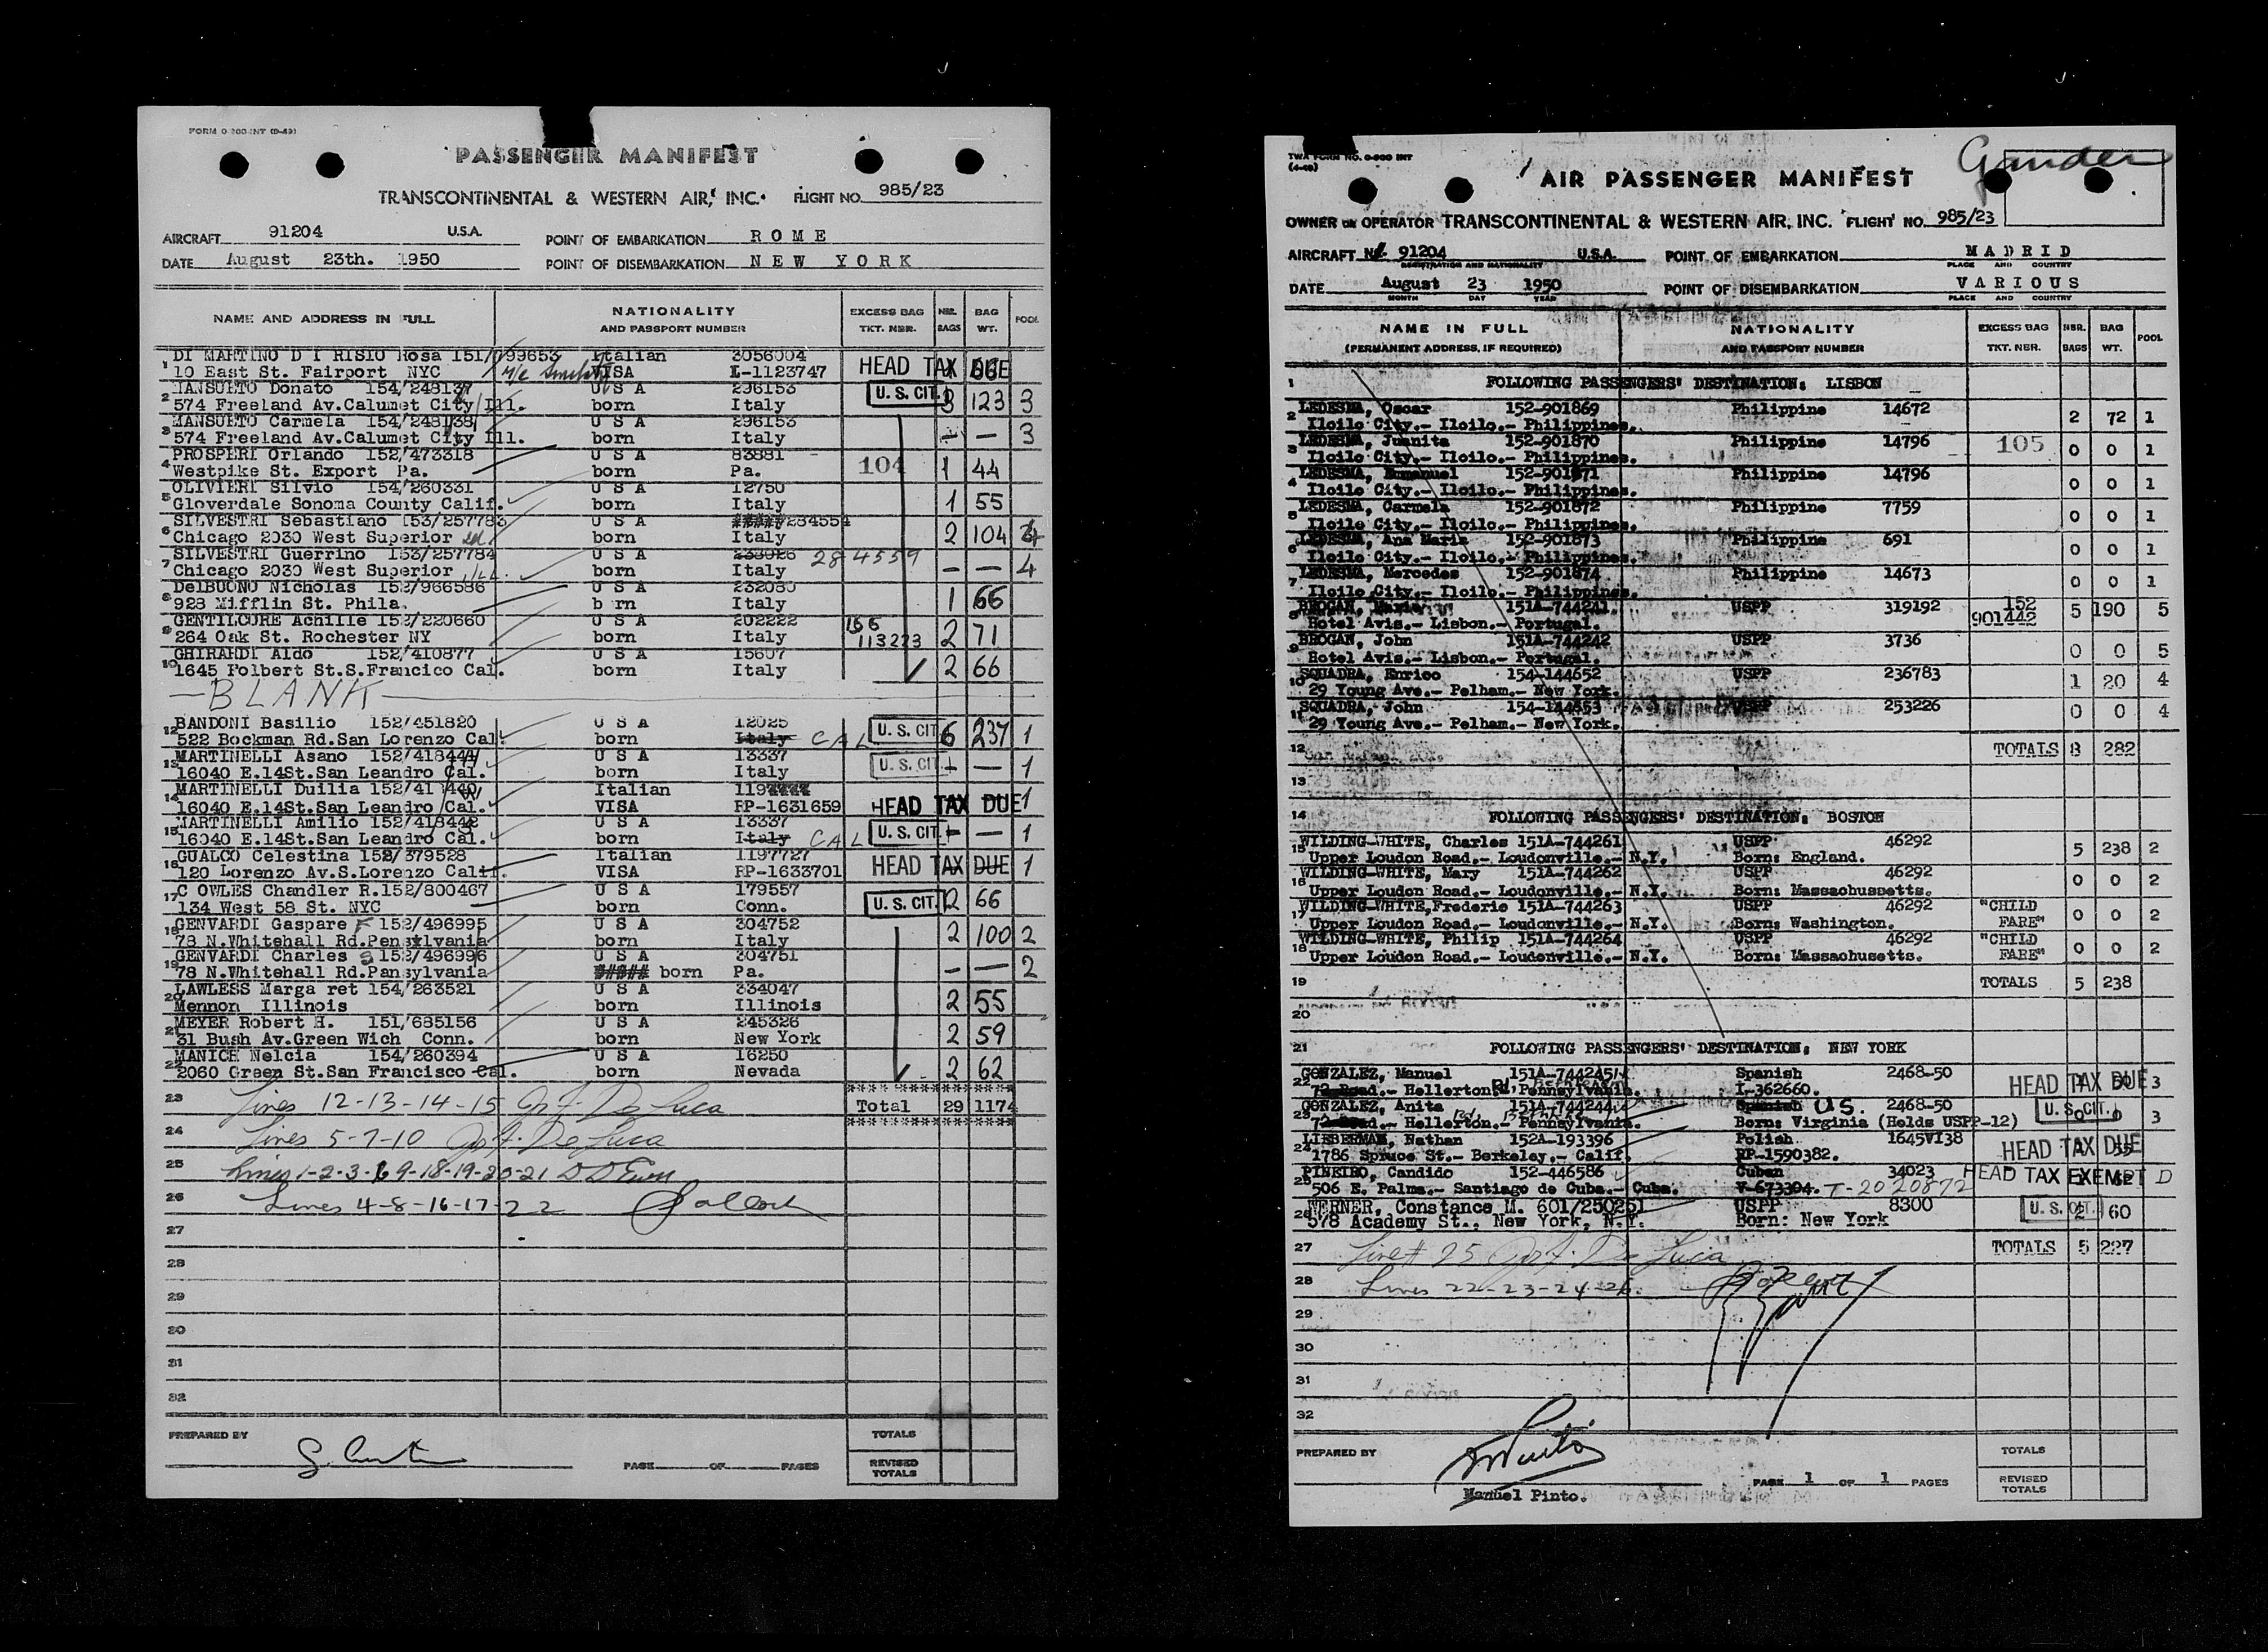 FORM 0-200-INT (9-49)
PASSENGER MANIFEST
TRANSCONTINENTAL & WESTERN AIR, INC. FLIGHT NO. 985/23
AIRCRAFT 91204 U.S.A. POINT OF EMBARKATION ROME
DATE August 23th. 1950 POINT OF DISEMBARKATION NEW YORK
NAME AND ADDRESS IN FULL NATIONALITY AND PASSPORT NUMBER EXCESS BAG TKT. NBR. NBR. BAGS BAG WT. POOL
1 DI MARTINO D I RISIO Rosa 151/099653 Italian 3056004
10 East St. Fairport NYC VISA I-1123747 HEAD TAX DUE
2 MANSUETO Donato 154/248137 U S A 296153 U. S. CIT.
574 Freeland Av.Calumet City Ill. born Italy 3 123 3
3 MANSUETO Carmela 154/248138 U S A 296153
574 Freeland Av.Calumet City Ill. born Italy — — 3
4 PROSPERI Orlando 152/473318 U S A 83881
Westpike St. Export Pa. born Pa. 104 1 44
5 OLIVIERI Silvio 154/260331 U S A 12750
Gloverdale Sonoma County Calif. born Italy 1 55
6 SILVESTRI Sebastiano 153/257783 U S A ##### 284554
Chicago 2030 West Superior born Italy 2 104 4
7 SILVESTRI Guerrino 153/257784 U S A 284559
Chicago 2030 West Superior Ill. born Italy — — 4
8 DelBUONO Nicholas 152/966586 U S A 232080
928 Mifflin St. Phila. b rn Italy 1 66
9 GENTILCORE Achille 152/220660 U S A 202222
264 Oak St. Rochester NY born Italy 113223 2 71
10 GHIRARDI Aldo 152/410877 U S A 15607
1645 Polbert St.S.Francico Cal. born Italy 2 66
—BLANK—
12 BANDONI Basilio 152/451820 U S A 12025
522 Bockman Rd.San Lorenzo Cal. born Italy CAL U. S. CIT. 6 237 1
13 MARTINELLI Asano 152/418441 U S A 13337
16040 E.14St.San Leandro Cal. born Italy U. S. CIT. — — 1
14 MARTINELLI Duilia 152/41 440 Italian
16040 E.14St.San Leandro Cal. VISA RP-1631659 HEAD TAX DUE 1
15 MARTINELLI Amilio 152/418442 U S A 13337
16040 E.14St.San Leandro Cal. born Italy CAL U. S. CIT. — — 1
16 GUALCO Celestina 152/379528 Italian 1197727
120 Lorenzo Av.S.Lorenzo Calif. VISA RP-1633701 HEAD TAX DUE 1
17 C OWLES Chandler R.152/800467 U S A 179557
134 West 58 St. NYC born Conn. U. S. CIT. 2 66
18 GENVARDI Gaspare F 152/496995 U S A 304752
78 N.Whitehall Rd.Pensylvania born Italy 2 100 2
19 GENVARDI Charles S 152/496996 U S A 304751
78 N.Whitehall Rd.Pansylvania ##### born Pa. — — 2
20 LAWLESS Marga ret 154/263521 U S A 334047
Mennon Illinois born Illinois 2 55
21 MEYER Robert H. 151/685156 U S A 245326
31 Bush Av.Green Wich Conn. born New York 2 59
22 MANICH Nelcia 154/260394 U S A 16250
2060 Green St.San Francisco Cal. born Nevada 2 62
23 Lines 12-13-14-15 De Luca Total 29 1174
24 Lines 5-7-10 De Luca
25 Lines 1-2-3-6 9-18-19-20-21
26 Lines 4-8-16-17-22
27
28
29
30
31
32
PREPARED BY TOTALS
PAGE OF PAGES REVISED TOTALS
Gander
TWA FORM NO. 0-200 INT
(4-49)
AIR PASSENGER MANIFEST
OWNER OR OPERATOR TRANSCONTINENTAL & WESTERN AIR, INC. FLIGHT NO. 985/23
AIRCRAFT N 91204 U.S.A. POINT OF EMBARKATION MADRID
REGISTRATION AND NATIONALITY PLACE AND COUNTRY
DATE August 23 1950 POINT OF DISEMBARKATION VARIOUS
MONTH DAY YEAR PLACE AND COUNTRY
NAME IN FULL NATIONALITY EXCESS BAG NBR. BAG POOL
(PERMANENT ADDRESS, IF REQUIRED) AND PASSPORT NUMBER TKT. NBR. BAGS WT.
1 FOLLOWING PASSENGERS' DESTINATION: LISBON
2 LEDESMA, Oscar 152-901869 Philippine 14672
Iloilo City.- Iloilo.- Philippines. 2 72 1
3 LEDESMA, Juanita 152-901870 Philippine 14796 105
Iloilo City.- Iloilo.- Philippines. 0 0 1
4 LEDESMA, Emmanuel 152-901871 Philippine 14796
Iloilo City.- Iloilo.- Philippines. 0 0 1
5 LEDESMA, Carmela 152-901872 Philippine 7759
Iloilo City.- Iloilo.- Philippines. 0 0 1
6 LEDESMA, Ana Maria 152-901873 Philippine 691
Iloilo City.- Iloilo.- Philippines. 0 0 1
7 LEDESMA, Mercedes 152-901874 Philippine 14673
Iloilo City.- Iloilo.- Philippines. 0 0 1
8 BROGAN, 151A-744241. USPP 319192 152
Hotel Avis.- Lisbon.- Portugal. 901442 5 190 5
9 BROGAN, John 151A-744242 USPP 3736
Hotel Avis.- Lisbon.- Portugal. 0 0 5
10 SQUADRA, Enrico 154-144652 USPP 236783
29 Young Ave.- Pelham.- New York. 1 20 4
11 SQUADRA, John 154-144653 USPP 253226
29 Young Ave.- Pelham.- New York. 0 0 4
12 TOTALS 8 282
13
14 FOLLOWING PASSENGERS' DESTINATION: BOSTON
15 WILDING-WHITE, Charles 151A-744261 USPP 46292
Upper Loudon Road.- Loudonville.- N.Y. Born: England. 5 238 2
16 WILDING-WHITE, Mary 151A-744262 USPP 46292
Upper Loudon Road.- Loudonville.- N.Y. Born: Massachussetts. 0 0 2
17 WILDING-WHITE,Frederic 151A-744263 USPP 46292 "CHILD
Upper Loudon Road.- Loudonville.- N.Y. Born: Washington. FARE" 0 0 2
18 WILDING-WHITE, Philip 151A-744264 USPP 46292 "CHILD
Upper Loudon Road.- Loudonville.- N.Y. Born: Massachusetts. FARE" 0 0 2
19 TOTALS 5 238
20
21 FOLLOWING PASSENGERS' DESTINATION: NEW YORK
22 GONZALEZ, Manuel 151A-744245 Spanish 2468-50
72 Road.- Hellerton.- Pennsylvania. I-362660. HEAD TAX DUE 3
23 GONZALEZ, Anita 151A-744244 Spanish U.S. 2468-50
Hellerton.- Pennsylvania. Born: Virginia (Holds USPP-12) U. S. CIT. 3
24 LIEBERMAN, Nathan 152A-193396 Polish 1645VI38
1786 Spruce St.- Berkeley.- Calif. RP-1590382. HEAD TAX DUE
25 PINEIRO, Candido 152-446586 Cuban 34023
506 E. Palma.- Santiago de Cuba.- Cuba. V-673394. T-2020872 HEAD TAX EXEMPT D
26 WERNER, Constance M. 601/250251 USPP 8300
578 Academy St., New York, N.Y. Born: New York U. S. CIT. 2 60
27 Line# 25 De Luca TOTALS 5 227
28 Lines 22-23-24-26.
29
30
31
32
PREPARED BY TOTALS
PAGE 1 OF 1 PAGES REVISED TOTALS
Manuel Pinto.